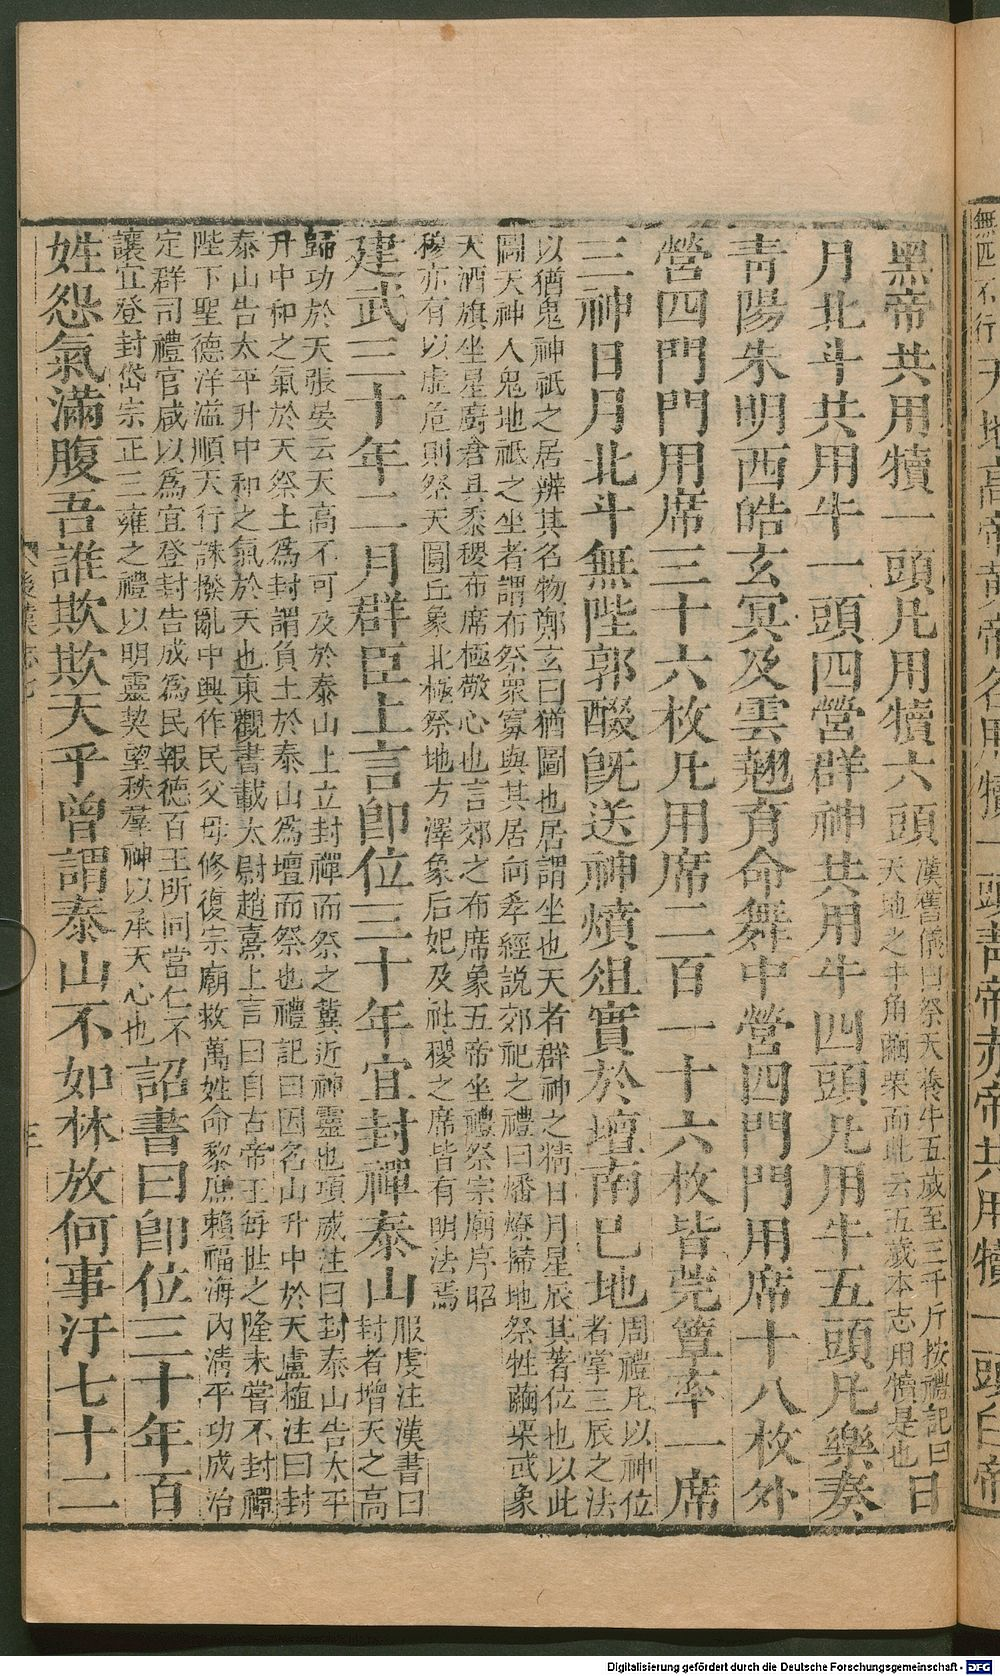 黑帝共用犢一頭凡用犢六頭漢舊儀曰祭天養牛五歲至三千斤按禮記曰天地之牛角繭栗而此云五歲本志用犢是也日
月北斗共用牛一頭四營群神共用牛四頭凡用牛五頭凡樂奏
靑陽朱明西皓玄冥及雲翹育命舞中營四門門用席十八枚外
營四門門用席三十六枚凡用席二百一十六枚皆莞簟率一席
三神日月北斗無陛郭醊旣送神燌俎實於壇南巳地周禮凡以神位者掌三辰之法
以猶鬼神祇之居辨其名物鄭玄曰猶圖也居謂坐也天者群神之精日月星辰其著位也以此
圖天神人鬼地祗之坐者謂布祭衆寡與其居向孝經說郊祀之禮曰燔燎掃地祭牲繭栗或象
天酒旗坐星廚倉具黍稷布席極敬心也言郊之布席象五帝坐禮祭宗廟序昭
穆亦有以虛危則祭天圜丘象北極祭地方澤象后妃及社稷之席皆有明法焉
建武三十年二月群臣上言卽位三十年宜封禪泰山服虔注漢書曰封者增天之高
歸功於天張晏云天高不可及於泰山上立封禪而祭之冀近神靈也項威注曰封泰山告太平
升中和之氣於天祭土爲封謂負土於泰山爲壇而祭也禮記曰因名山升中於天盧植注曰封
泰山告太平升中和之氣於天也東觀書載太尉趙熹上言曰自古帝王每世之隆未嘗不封禪
陛下聖德洋溢順天行誅撥亂中興作民父母修復宗廟救萬姓命黎庶賴福海內淸平功成治
定群司禮官咸以爲宜登封告成爲民報德百王所同當仁不
讓宜登封岱宗正三雍之禮以明靈契望秩羣神以承天心也詔書曰卽位三十年百
姓怨氣滿腹吾誰欺欺天乎曾謂泰山不如林放何事汙七十二
後漢志七
三
天地高帝黃帝各用犢一頭靑帝赤帝共用犢一頭白帝
Digitalisierung gefördert durch die Deutsche Forschungsgemeinschaft - DFG